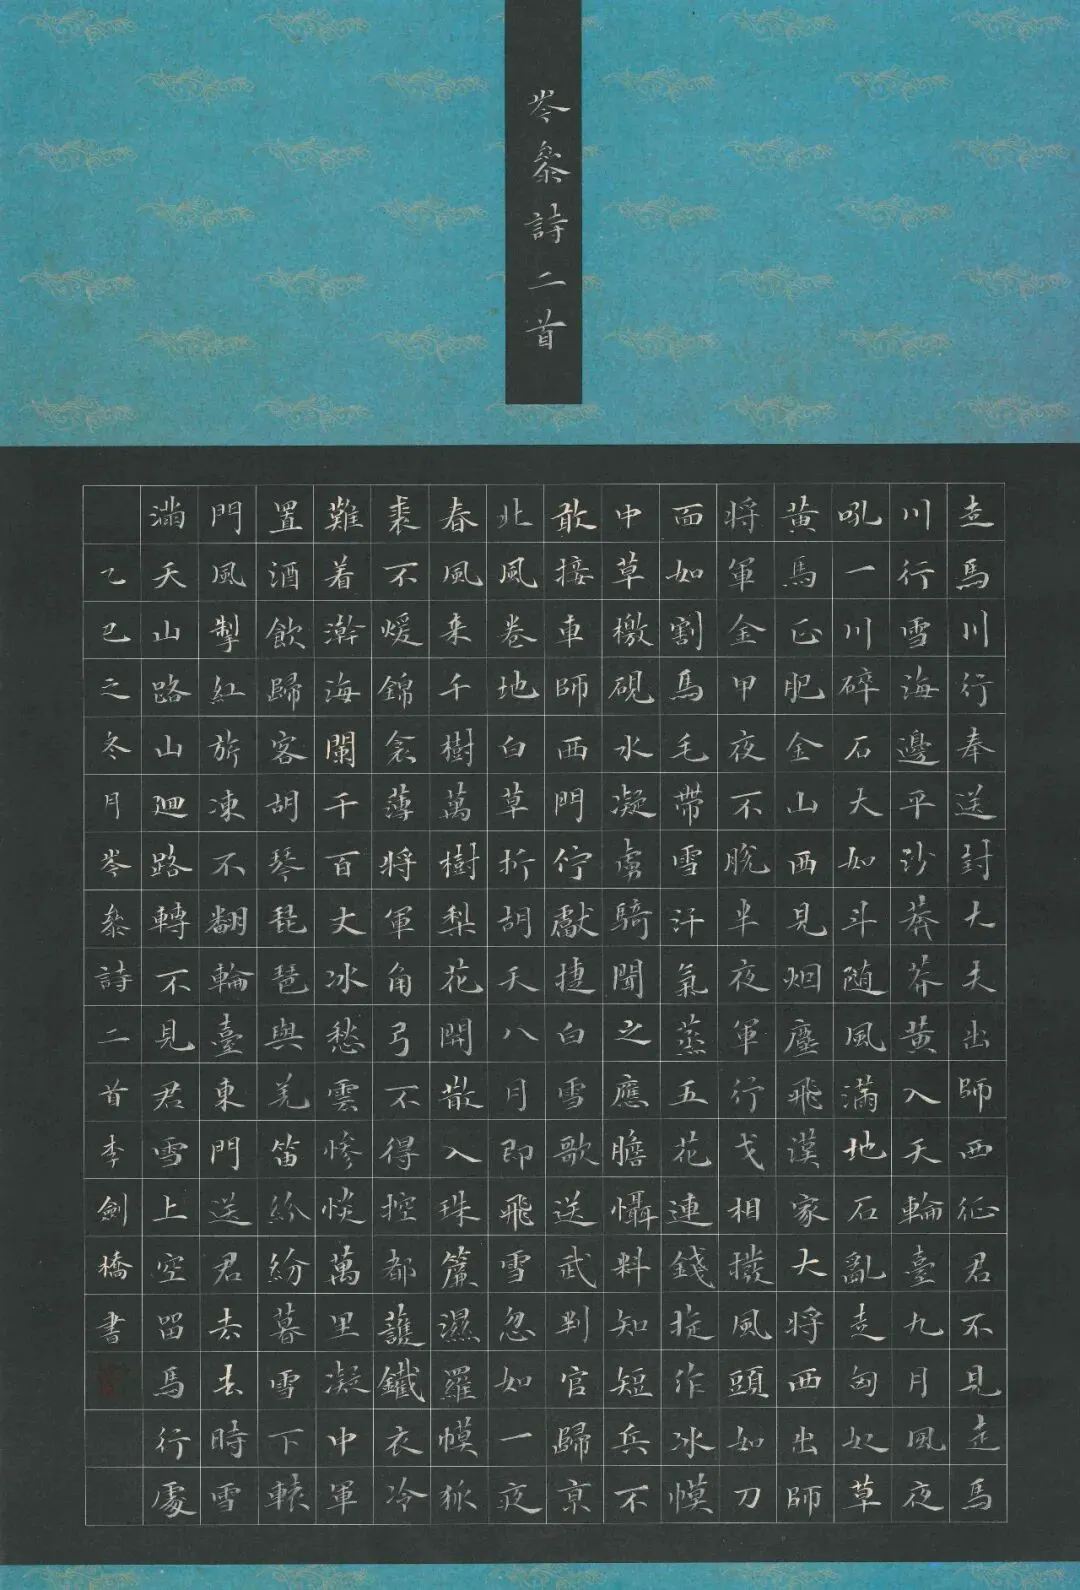 岑參詩二首
走馬川行奉送封大夫出師西征君不見走馬
川行雪海邊平沙莽莽黃入天輪臺九月風夜
吼一川碎石大如斗随風滿地石亂走匈奴草
黃馬正肥金山西見烟塵飛漢家大将西出師
将軍金甲夜不脫半夜軍行戈相撥風頭如刀
面如割馬毛帶雪汗氣蒸五花連錢旋作冰幙
中草檄硯水凝虜騎聞之應膽懾料知短兵不
敢接車師西門佇獻捷白雪歌送武判官歸京
北風卷地白草折胡天八月即飛雪忽如一夜
春風来千樹萬樹梨花開散入珠簾濕羅幙狐
裘不煖錦衾薄将軍角弓不得控都護鐵衣冷
難着瀚海闌干百丈冰愁雲惨淡萬里凝中軍
置酒飲歸客胡琴琵琶與羌笛紛紛暮雪下轅
門風掣紅旂凍不翻輪臺東門送君去去時雪
滿天山路山迴路轉不見君雪上空留馬行處
乙巳之冬月岑參詩二首李劍橋書